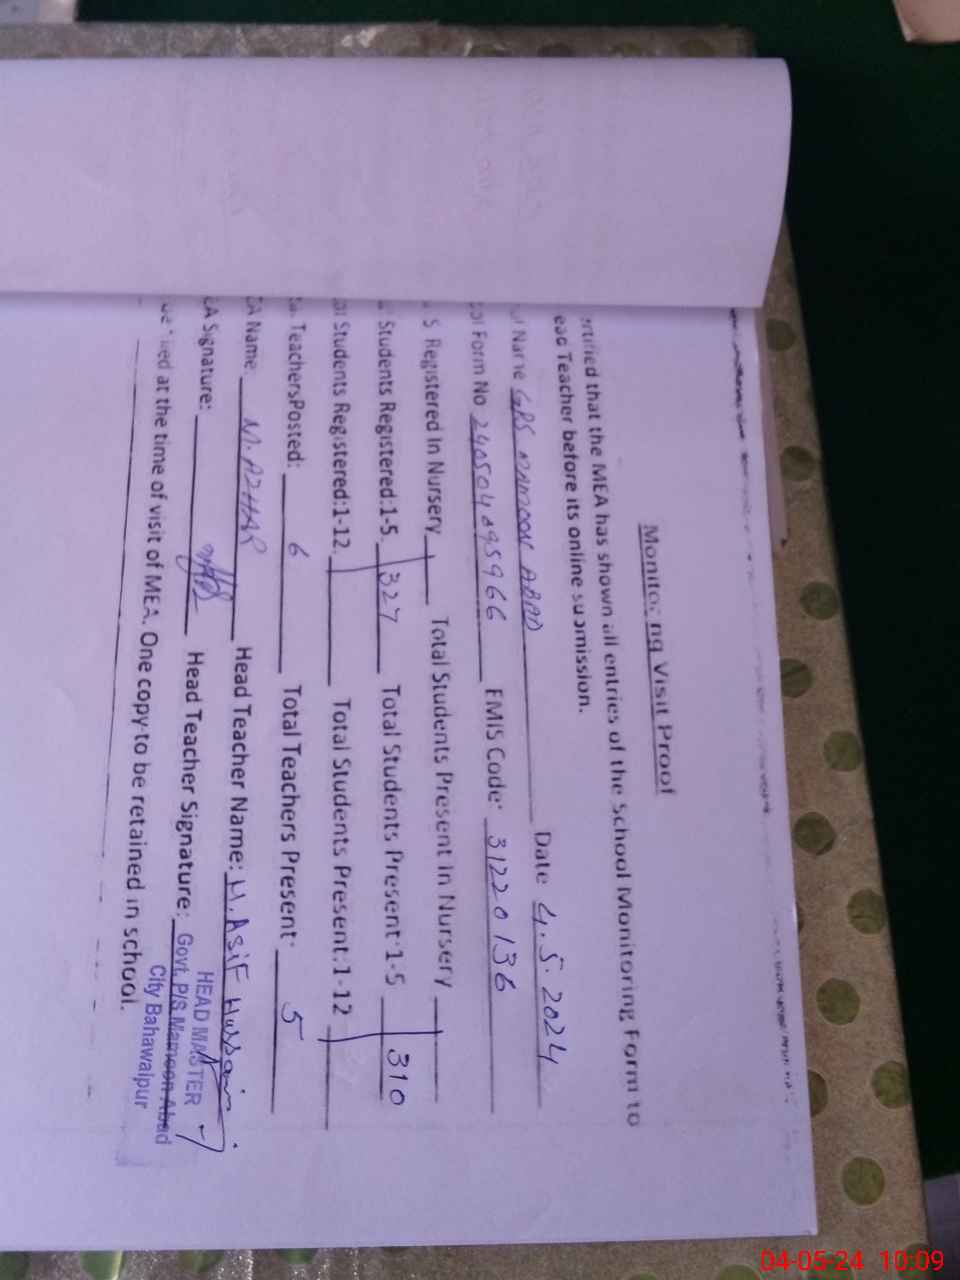 Monitoring Visit Proof
ertified that the MEA has shown all entries of the School Monitoring Form to
ead Teacher before its online submission.
ol Name GPS MAMOON ABAD Date 4.5.2024
ool Form No 240504095966 EMIS Code: 31220136
S Registered In Nursery Total Students Present In Nursery
Students Registered:1-5 327 Total Students Present:1-5 310
Students Registered:1-12 Total Students Present:1-12
TeachersPosted: 6 Total Teachers Present: 5
EA Name: M. AZHAR Head Teacher Name: M. ASiF Hussain
EA Signature: Head Teacher Signature:
HEAD MASTER
Govt. P/S Mamoon Abad
City Bahawalpur
at the time of visit of MEA. One copy to be retained in school.
04-05-24 10:09